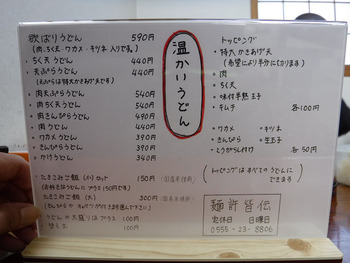 欲ばりうどん 590円
(肉、ちく天・ワカメ・キツネ 入りです。)
・ちく天うどん 440円
・天ぷらうどん 440円
(天ぷらは特大かきあげ天です)
・肉天ぷらうどん 540円
・肉ちく天うどん 540円
・肉きんぴらうどん 490円
・肉うどん 440円
・ワカメうどん 390円
・きんぴらうどん 390円
・かけうどん 340円
たきこみご飯 (小) セット 150円
(お好きなうどんに プラス 150円です)
たきこみご飯 (大) 300円
・うどんの大盛りは プラス 100円
・替え玉 100円
温かいうどん
トッピング
・特大 かきあげ天
(希望により半分にカットします)
・肉
・ちく天
・味付半熟玉子
・キムチ 各100円
・ワカメ ・キツネ
・きんぴら ・生玉子
・とうがらし付け 各50円
(トッピングは すべてのうどんに
できます)
麺許皆伝
定休日 日曜日
0555-23-8806